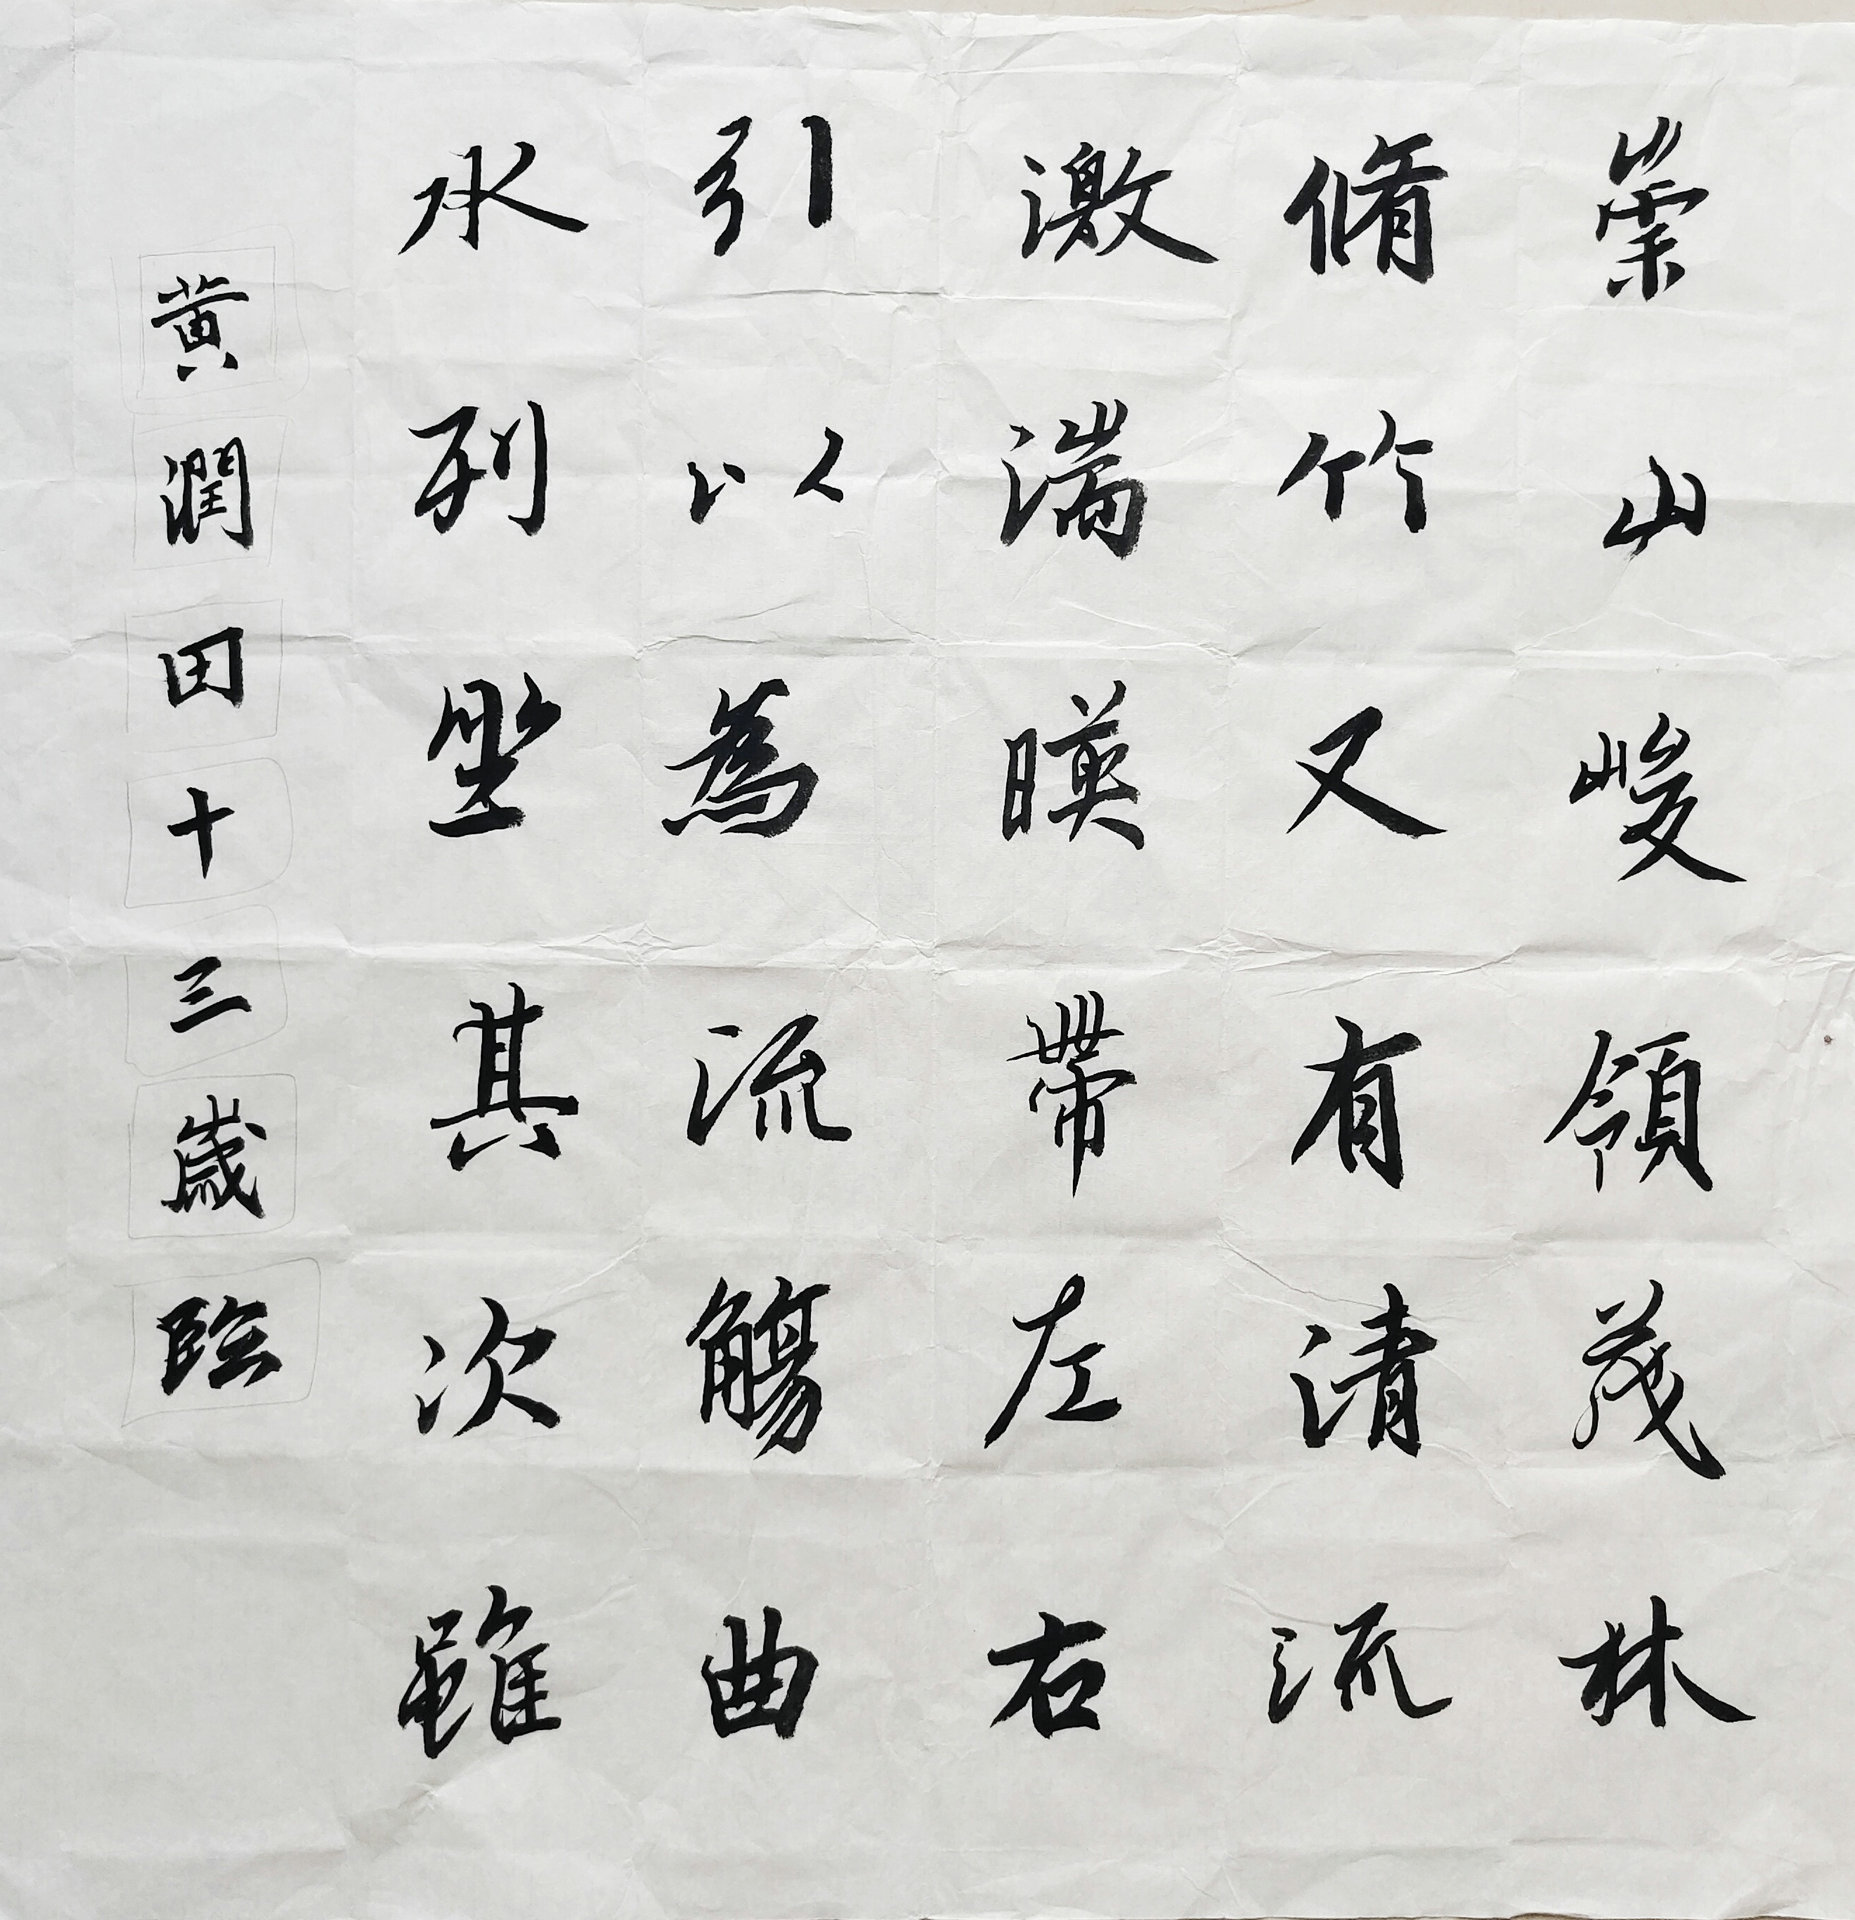 崇山峻領茂林
脩竹又有清流
激湍暎帶左右
引以為流觴曲
水列坐其次雖
黄潤田十三歲臨